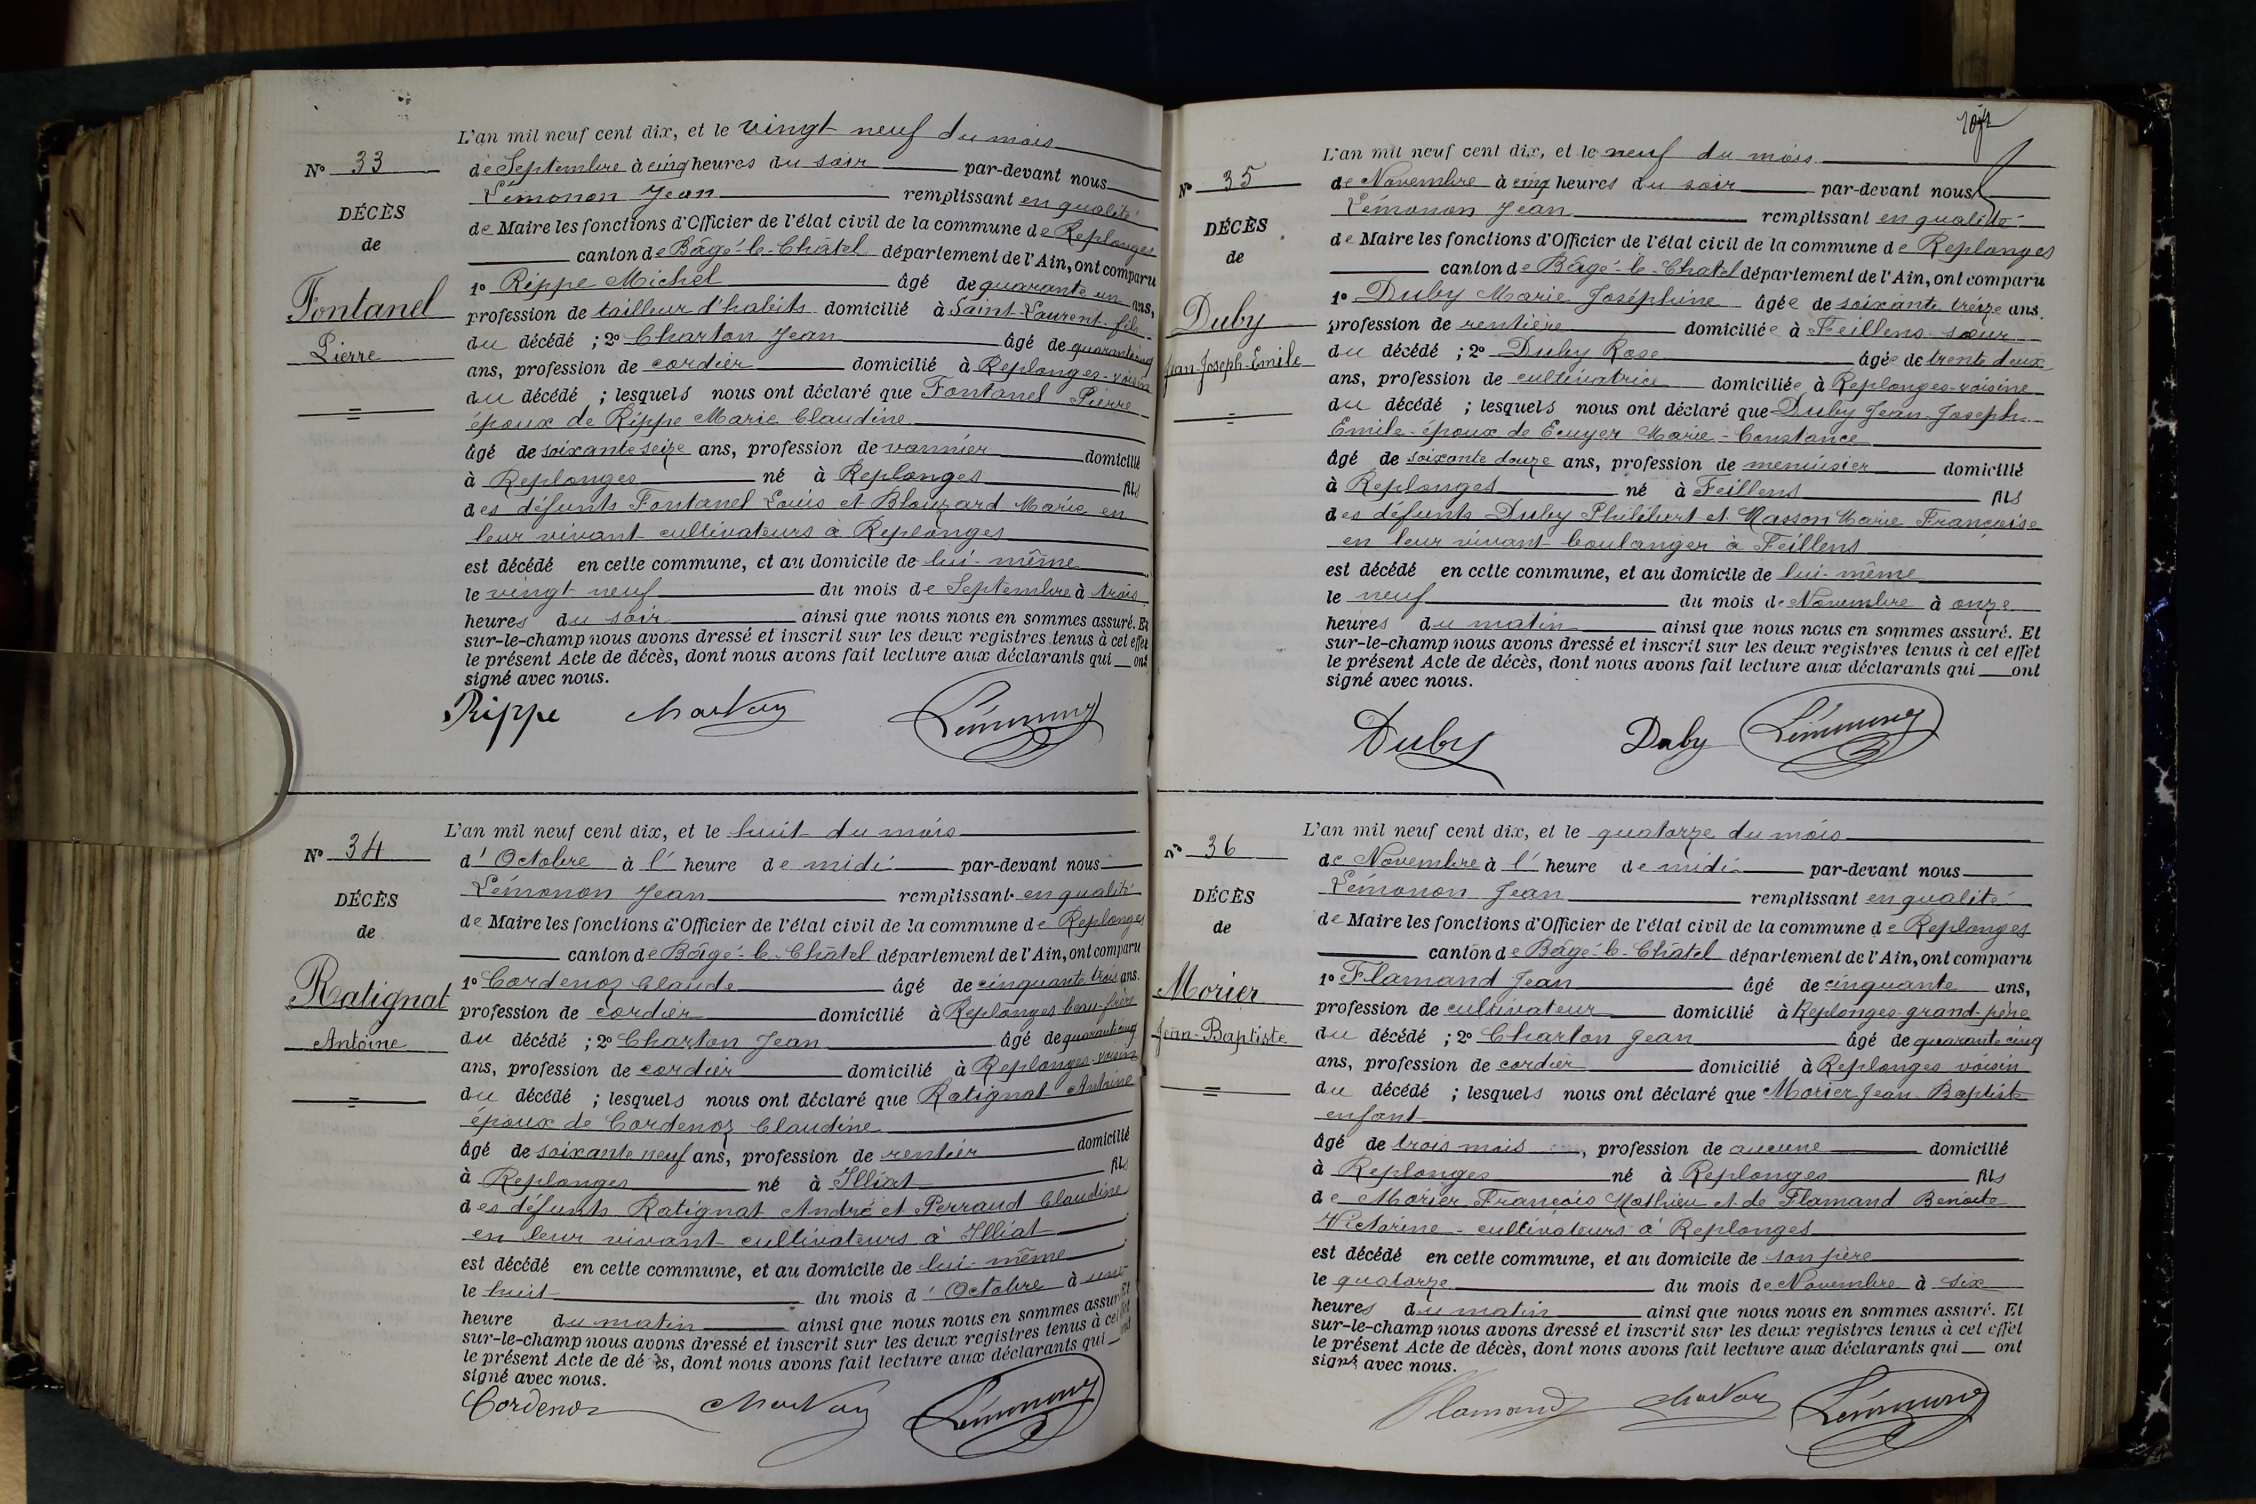 N° 33
DÉCÈS
de
Fontanel
Pierre
L'an mil neuf cent dix, et le vingt neuf du mois
de Septembre à cinq heures du soir par-devant nous
Lémonon Jean remplissant en qualité
de Maire les fonctions d'Officier de l'état civil de la commune de Replonges
canton de Bâgé-le-Châtel département de l'Ain, ont comparu
1° Rippe Michel âgé de quarante un ans,
profession de tailleur d'habits domicilié à Saint-Laurent fils
du décédé ; 2° Charton Jean âgé de quarante cinq
ans, profession de cordier domicilié à Replonges-voisin
du décédé ; lesquels nous ont déclaré que Fontanel Pierre
époux de Rippe Marie Claudine
âgé de soixante seize ans, profession de vannier domicilié
à Replonges né à Replonges fils
des défunts Fontanel Louis et Blouzard Marie en
leur vivant cultivateurs à Replonges
est décédé en cette commune, et au domicile de lui-même
le vingt neuf du mois de Septembre à trois
heures du soir ainsi que nous nous en sommes assuré. Et
sur-le-champ nous avons dressé et inscrit sur les deux registres tenus à cet effet
le présent Acte de décès, dont nous avons fait lecture aux déclarants qui ont
signé avec nous.
Rippe Charton Lémonon
N° 34
DÉCÈS
de
Ratignat
Antoine
L'an mil neuf cent dix, et le huit du mois
d'Octobre à l'heure de midi par-devant nous
Lémonon Jean remplissant en qualité
de Maire les fonctions d'Officier de l'état civil de la commune de Replonges
canton de Bâgé-le-Châtel département de l'Ain, ont comparu
1° Cordenoz Claude âgé de cinquante trois ans.
profession de cordier domicilié à Replonges beau-frère
du décédé ; 2° Charton Jean âgé de quarante cinq
ans, profession de cordier domicilié à Replonges-voisin
du décédé ; lesquels nous ont déclaré que Ratignat Antoine
époux de Cordenoz Claudine
âgé de soixante neuf ans, profession de rentier domicilié
à Replonges né à Illiat fils
des défunts Ratignat André et Perraud Claudine
en leur vivant cultivateurs à Illiat
est décédé en cette commune, et au domicile de lui-même
le huit du mois d'Octobre à une
heure du matin ainsi que nous nous en sommes assuré. Et
sur-le-champ nous avons dressé et inscrit sur les deux registres tenus à cet effet
le présent Acte de décès, dont nous avons fait lecture aux déclarants qui ont
signé avec nous.
Cordenoz Charton Lémonon
N° 35
DÉCÈS
de
Duby
Jean-Joseph-Emile
L'an mil neuf cent dix, et le neuf du mois
de Novembre à cinq heures du soir par-devant nous
Lémonon Jean remplissant en qualité
de Maire les fonctions d'Officier de l'état civil de la commune de Replonges
canton de Bâgé-le-Chatel département de l'Ain, ont comparu
1° Duby Marie Joséphine âgée de soixante treize ans.
profession de rentière domiciliée à Feillens sœur
du décédé ; 2° Duby Rose âgée de trente deux
ans, profession de cultivatrice domiciliée à Replonges-voisine
du décédé ; lesquels nous ont déclaré que Duby Jean-Joseph
Emile-époux de Ecuyer Marie-Constance
âgé de soixante douze ans, profession de menuisier domicilié
à Replonges né à Feillens fils
des défunts Duby Philibert et Masson Marie Françoise
en leur vivant boulanger à Feillens
est décédé en cette commune, et au domicile de lui-même
le neuf du mois de Novembre à onze
heures du matin ainsi que nous nous en sommes assuré. Et
sur-le-champ nous avons dressé et inscrit sur les deux registres tenus à cet effet
le présent Acte de décès, dont nous avons fait lecture aux déclarants qui ont
signé avec nous.
Duby Duby Lémonon
N° 36
DÉCÈS
de
Morier
Jean-Baptiste
L'an mil neuf cent dix, et le quatorze du mois
de Novembre à l'heure de midi par-devant nous
Lémonon Jean remplissant en qualité
de Maire les fonctions d'Officier de l'état civil de la commune de Replonges
canton de Bâgé-le-Châtel département de l'Ain, ont comparu
1° Flamand Jean âgé de cinquante ans,
profession de cultivateur domicilié à Replonges-grand-père
du décédé ; 2° Charton Jean âgé de quarante cinq
ans, profession de cordier domicilié à Replonges voisin
du décédé ; lesquels nous ont déclaré que Morier Jean Baptiste
enfant
âgé de trois mois, profession de aucune domicilié
à Replonges né à Replonges fils
de Morier François Mathieu et de Flamand Benoite
Victorine-cultivateurs à Replonges
est décédé en cette commune, et au domicile de son père
le quatorze du mois de Novembre à six
heures du matin ainsi que nous nous en sommes assuré. Et
sur-le-champ nous avons dressé et inscrit sur les deux registres tenus à cet effet
le présent Acte de décès, dont nous avons fait lecture aux déclarants qui ont
signé avec nous.
Flamand Charton Lémonon